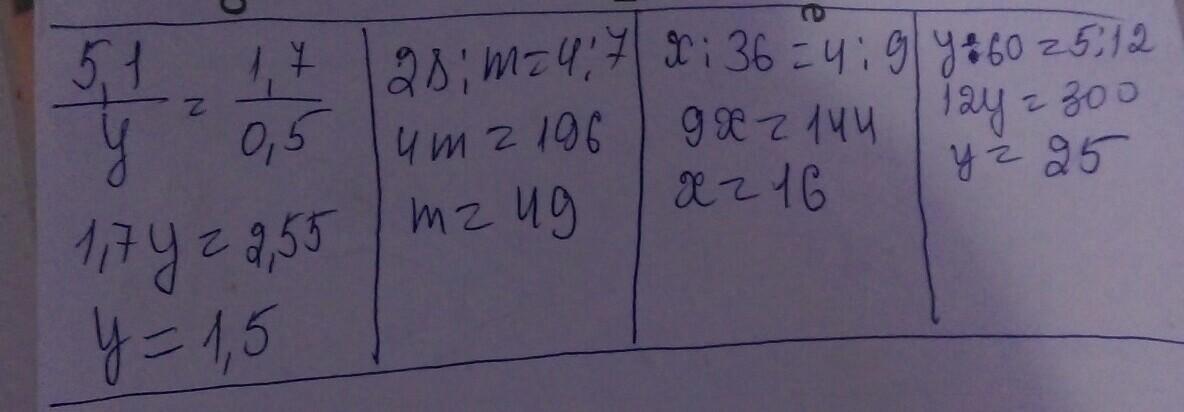 5,1/y = 1,7/0,5
1,7y = 2,55
y = 1,5
28 : m = 4 : 7
4m = 196
m = 49
x : 36 = 4 : 9
9x = 144
x = 16
y : 60 = 5 : 12
12y = 300
y = 25